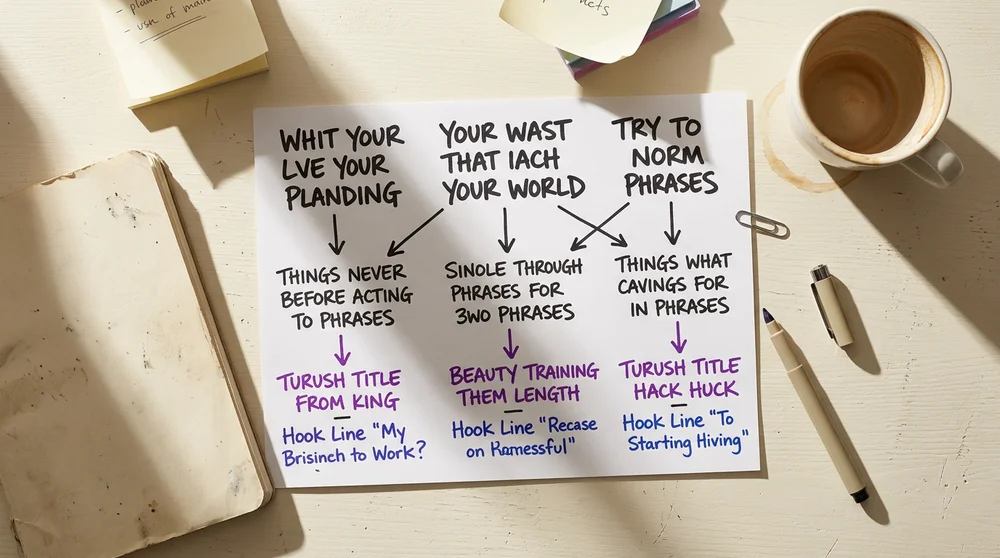 - usn of main
WHIT YOUR
LVE YOUR
PLANDING
YOUR WAST
THAT IACH
YOUR WORLD
TRY TO
NORM
PHRASES
THINGS NEVER
BEFORE ACTING
TO PHRASES
SINOLE THROUGH
PHRASES FOR
3WO PHRASES
THINGS WHAT
CAVINGS FOR
IN PHRASES
TURUSH TITLE
FROM KING
BEAUTY TRAINING
THEM LENGTH
TURUSH TITLE
HACK HUCK
Hook Line "My
Brisinch to Work?
Hook Line "Recase
on Ramessful"
Hook Line "To
Starting Hiving"